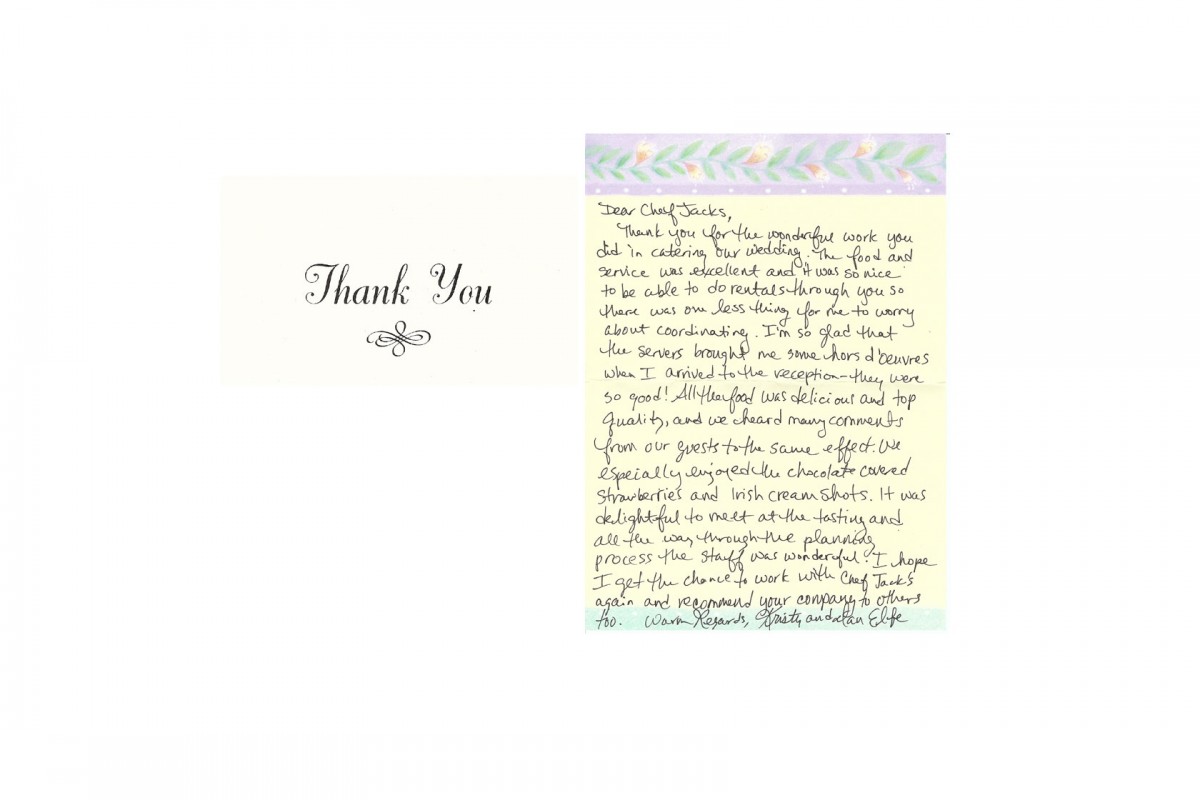 Thank You
Dear Chef Jacks,
Thank you for the wonderful work you
did in catering our wedding. The food and
service was excellent and it was so nice
to be able to do rentals through you so
there was one less thing for me to worry
about coordinating. I'm so glad that
the servers brought me some hors d'oeuvres
when I arrived to the reception - they were
so good! All the food was delicious and top
quality, and we heard many comments
from our guests to the same effect. We
especially enjoyed the chocolate covered
strawberries and Irish cream shots. It was
delightful to meet at the tasting and
all the way through the planning
process the staff was wonderful! I hope
I get the chance to work with Chef Jack's
again and recommend your company to others
too. Warm Regards, Kristy and